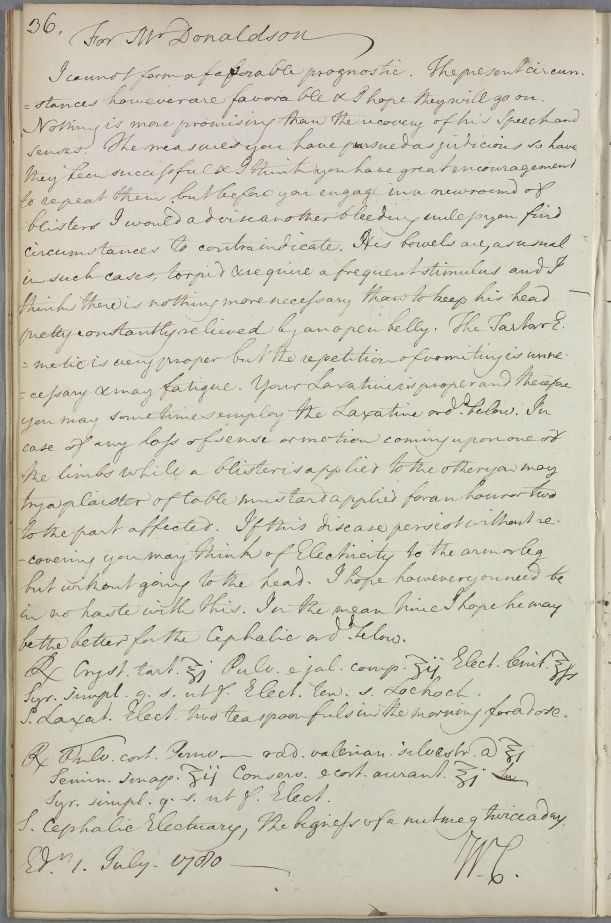 36.
For Mr Donaldson
I cannot form a faforable prognostic. The present circum-
=stances however are favorable & I hope they will go on.
Nothing is more promising than the recovery of his Speech and
senses. The measures you have pursued as judicious so have
they been successful & I think you have great encouragement
to repeat them but before you engage in a new round of
blisters I would advise another bleeding unless you find
circumstances to contraindicate. His bowels are, as usual
in such cases, torpid & require a frequent stimulus and I
think there is nothing more necessary than to keep his head
pretty constantly relieved by an open belly. The Tartar E-
=metic is very proper but the repetition of vomiting is unne-
=cessary & may fatigue. Your Laxative is proper and therefore
you may sometimes employ the Laxative ord.d below. In
case of any loss of sense or motion coming upon one of
the limbs while a blister is applied to the other you may
try a plaister of table mustard applied for an hour or two
to the part affected. If this disease persist without re-
-covering you may think of Electricity to the arm or leg
but without going to the head. I hope however you need be
in no haste with this. In the mean time I hope he may
be the better for the Cephalic ord.d below.
℞ Cryst. tart. ℥j Pulv. e jal. comp. ʒij Elect. lenit. ℥fs
Syr. simpl. q. s. ut f. Elect. ten. s. Lochoch.
S. Laxat. Elect. two teaspoonfuls in the morning for a dose.
℞ Pulv. cort. Peruv — rad. valerian. silvestr. a ℥j
Semin. sinap. ʒij Conserv. e cort. aurant. ℥j
Syr. simpl. q. s. ut f. Elect.
S. Cephalic Electuary, the bigness of a nutmeg twice a day.
Ed.n 1. July 1780
W.C.